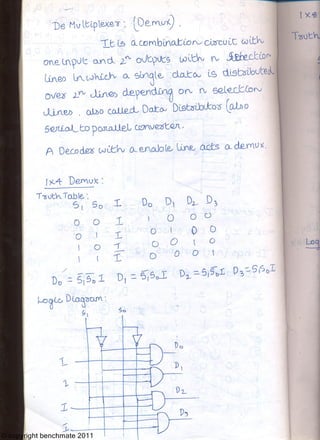 De Multiplexer : (Demux)
It is a combination circuit with
one input and 2ⁿ outputs with n Selection
lines in which a single data is distributed
over 2ⁿ lines depending on n selection
lines. also called Data Distributor (also
serial to parallel converter.
A Decoder with a enable line acts a demux.
1x4 Demux :
Truth Table :
S₁ S₀ I D₀ D₁ D₂ D₃
0 0 I 1 0 0 0
0 1 I 0 1 0 0
1 0 I 0 0 1 0
1 1 I 0 0 0 1
D₀ = S̅₁S̅₀ I D₁ = S̅₁S₀I D₂ = S₁S̅₀I D₃ = S₁S₀I
Logic Diagram :
S₁ S₀
I D₀
I D₁
I D₂
I D₃
1x8
Truth
Log
copyright benchmate 2011